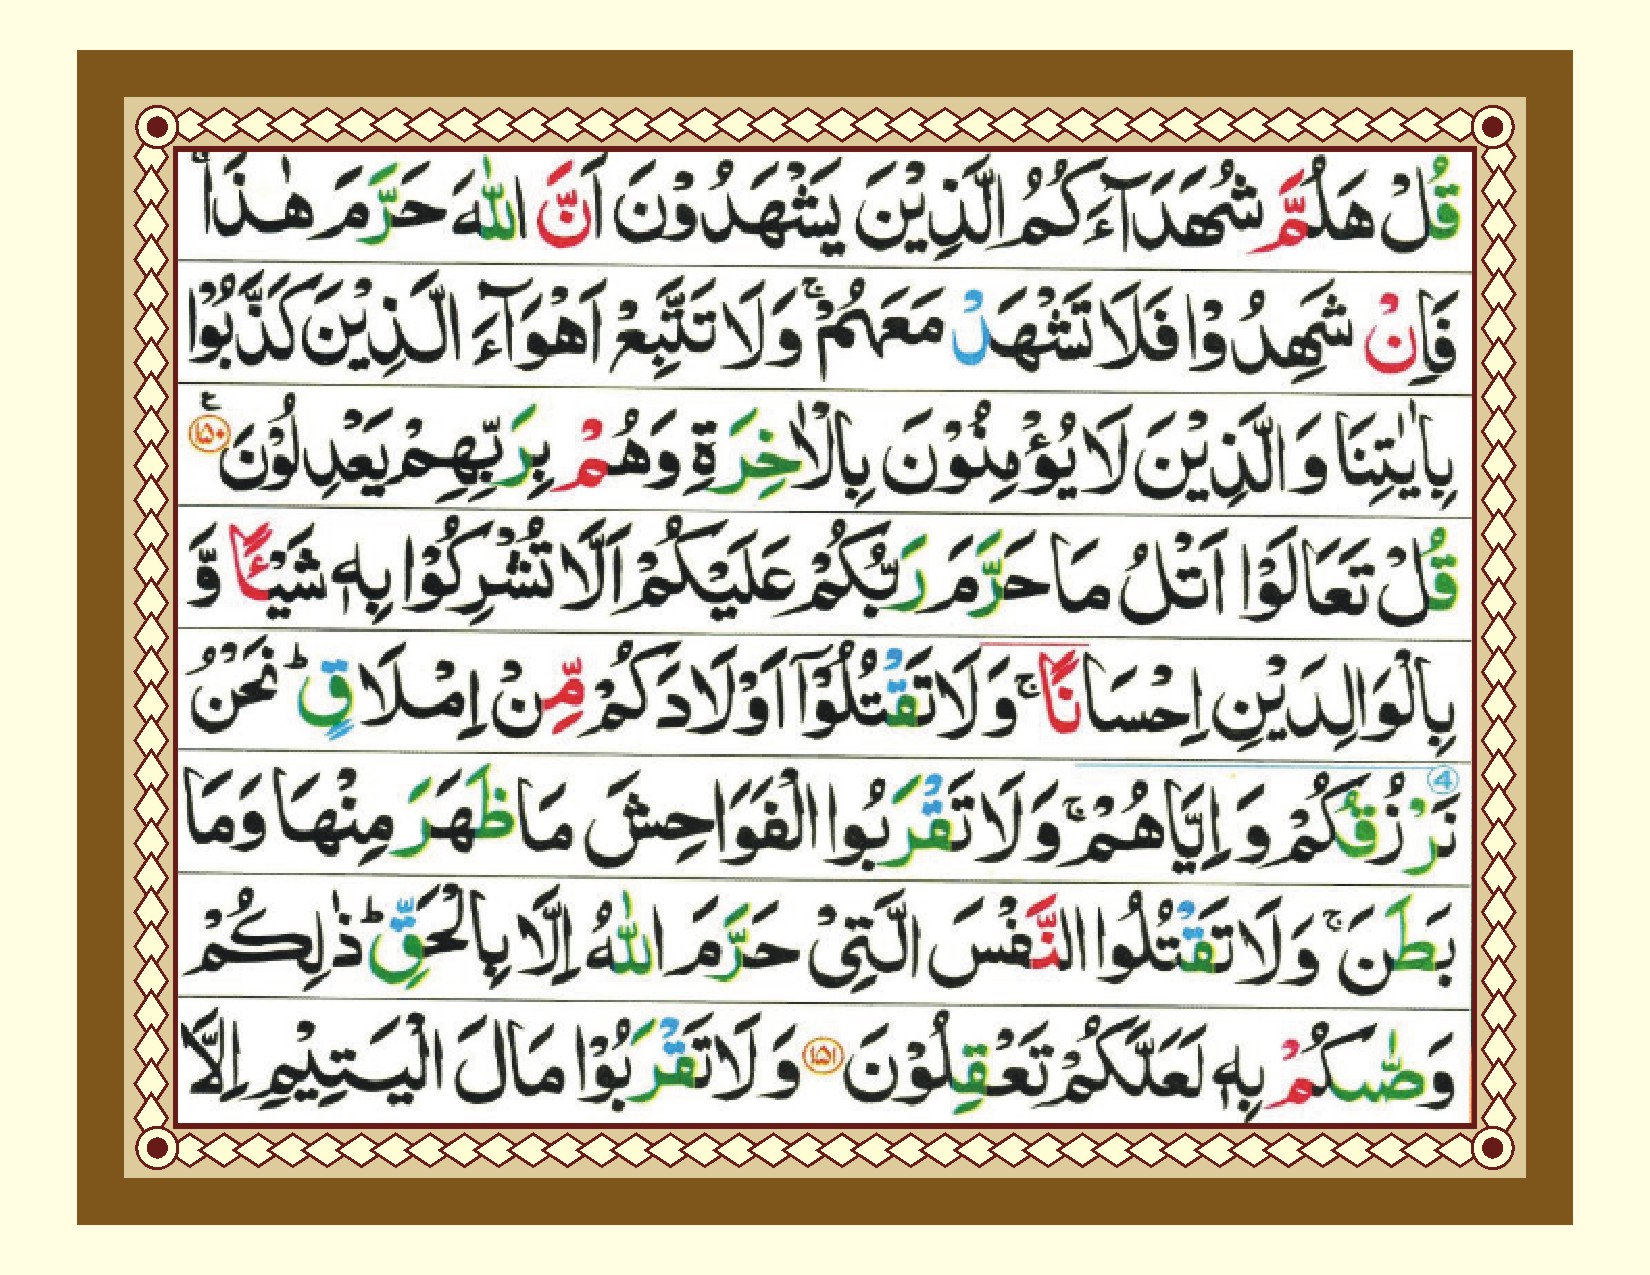 قُلْ هَلُمَّ شُهَدَآءَكُمُ الَّذِيْنَ يَشْهَدُوْنَ اَنَّ اللّٰهَ حَرَّمَ هٰذَاۚ
فَاِنْ شَهِدُوْا فَلَا تَشْهَدْ مَعَهُمْۚ وَلَا تَتَّبِعْ اَهْوَآءَ الَّذِيْنَ كَذَّبُوْا
بِاٰيٰتِنَا وَ الَّذِيْنَ لَا يُؤْمِنُوْنَ بِالْاٰخِرَةِ وَهُمْ بِرَبِّهِمْ يَعْدِلُوْنَ ۱۵۰ ع
قُلْ تَعَالَوْا اَتْلُ مَا حَرَّمَ رَبُّكُمْ عَلَيْكُمْ اَلَّا تُشْرِكُوْا بِهٖ شَيْـًٔا وَّ
بِالْوَالِدَيْنِ اِحْسَانًاۚ وَلَا تَقْتُلُوْٓا اَوْلَادَكُمْ مِّنْ اِمْلَاقٍؕ نَحْنُ
نَرْزُقُكُمْ وَ اِيَّاهُمْۚ وَلَا تَقْرَبُوا الْفَوَاحِشَ مَا ظَهَرَ مِنْهَا وَمَا 4
بَطَنَۚ وَلَا تَقْتُلُوا النَّفْسَ الَّتِيْ حَرَّمَ اللّٰهُ اِلَّا بِالْحَقِّؕ ذٰلِكُمْ
وَصّٰىكُمْ بِهٖ لَعَلَّكُمْ تَعْقِلُوْنَ ۱۵۱ وَلَا تَقْرَبُوْا مَالَ الْيَتِيْمِ اِلَّا